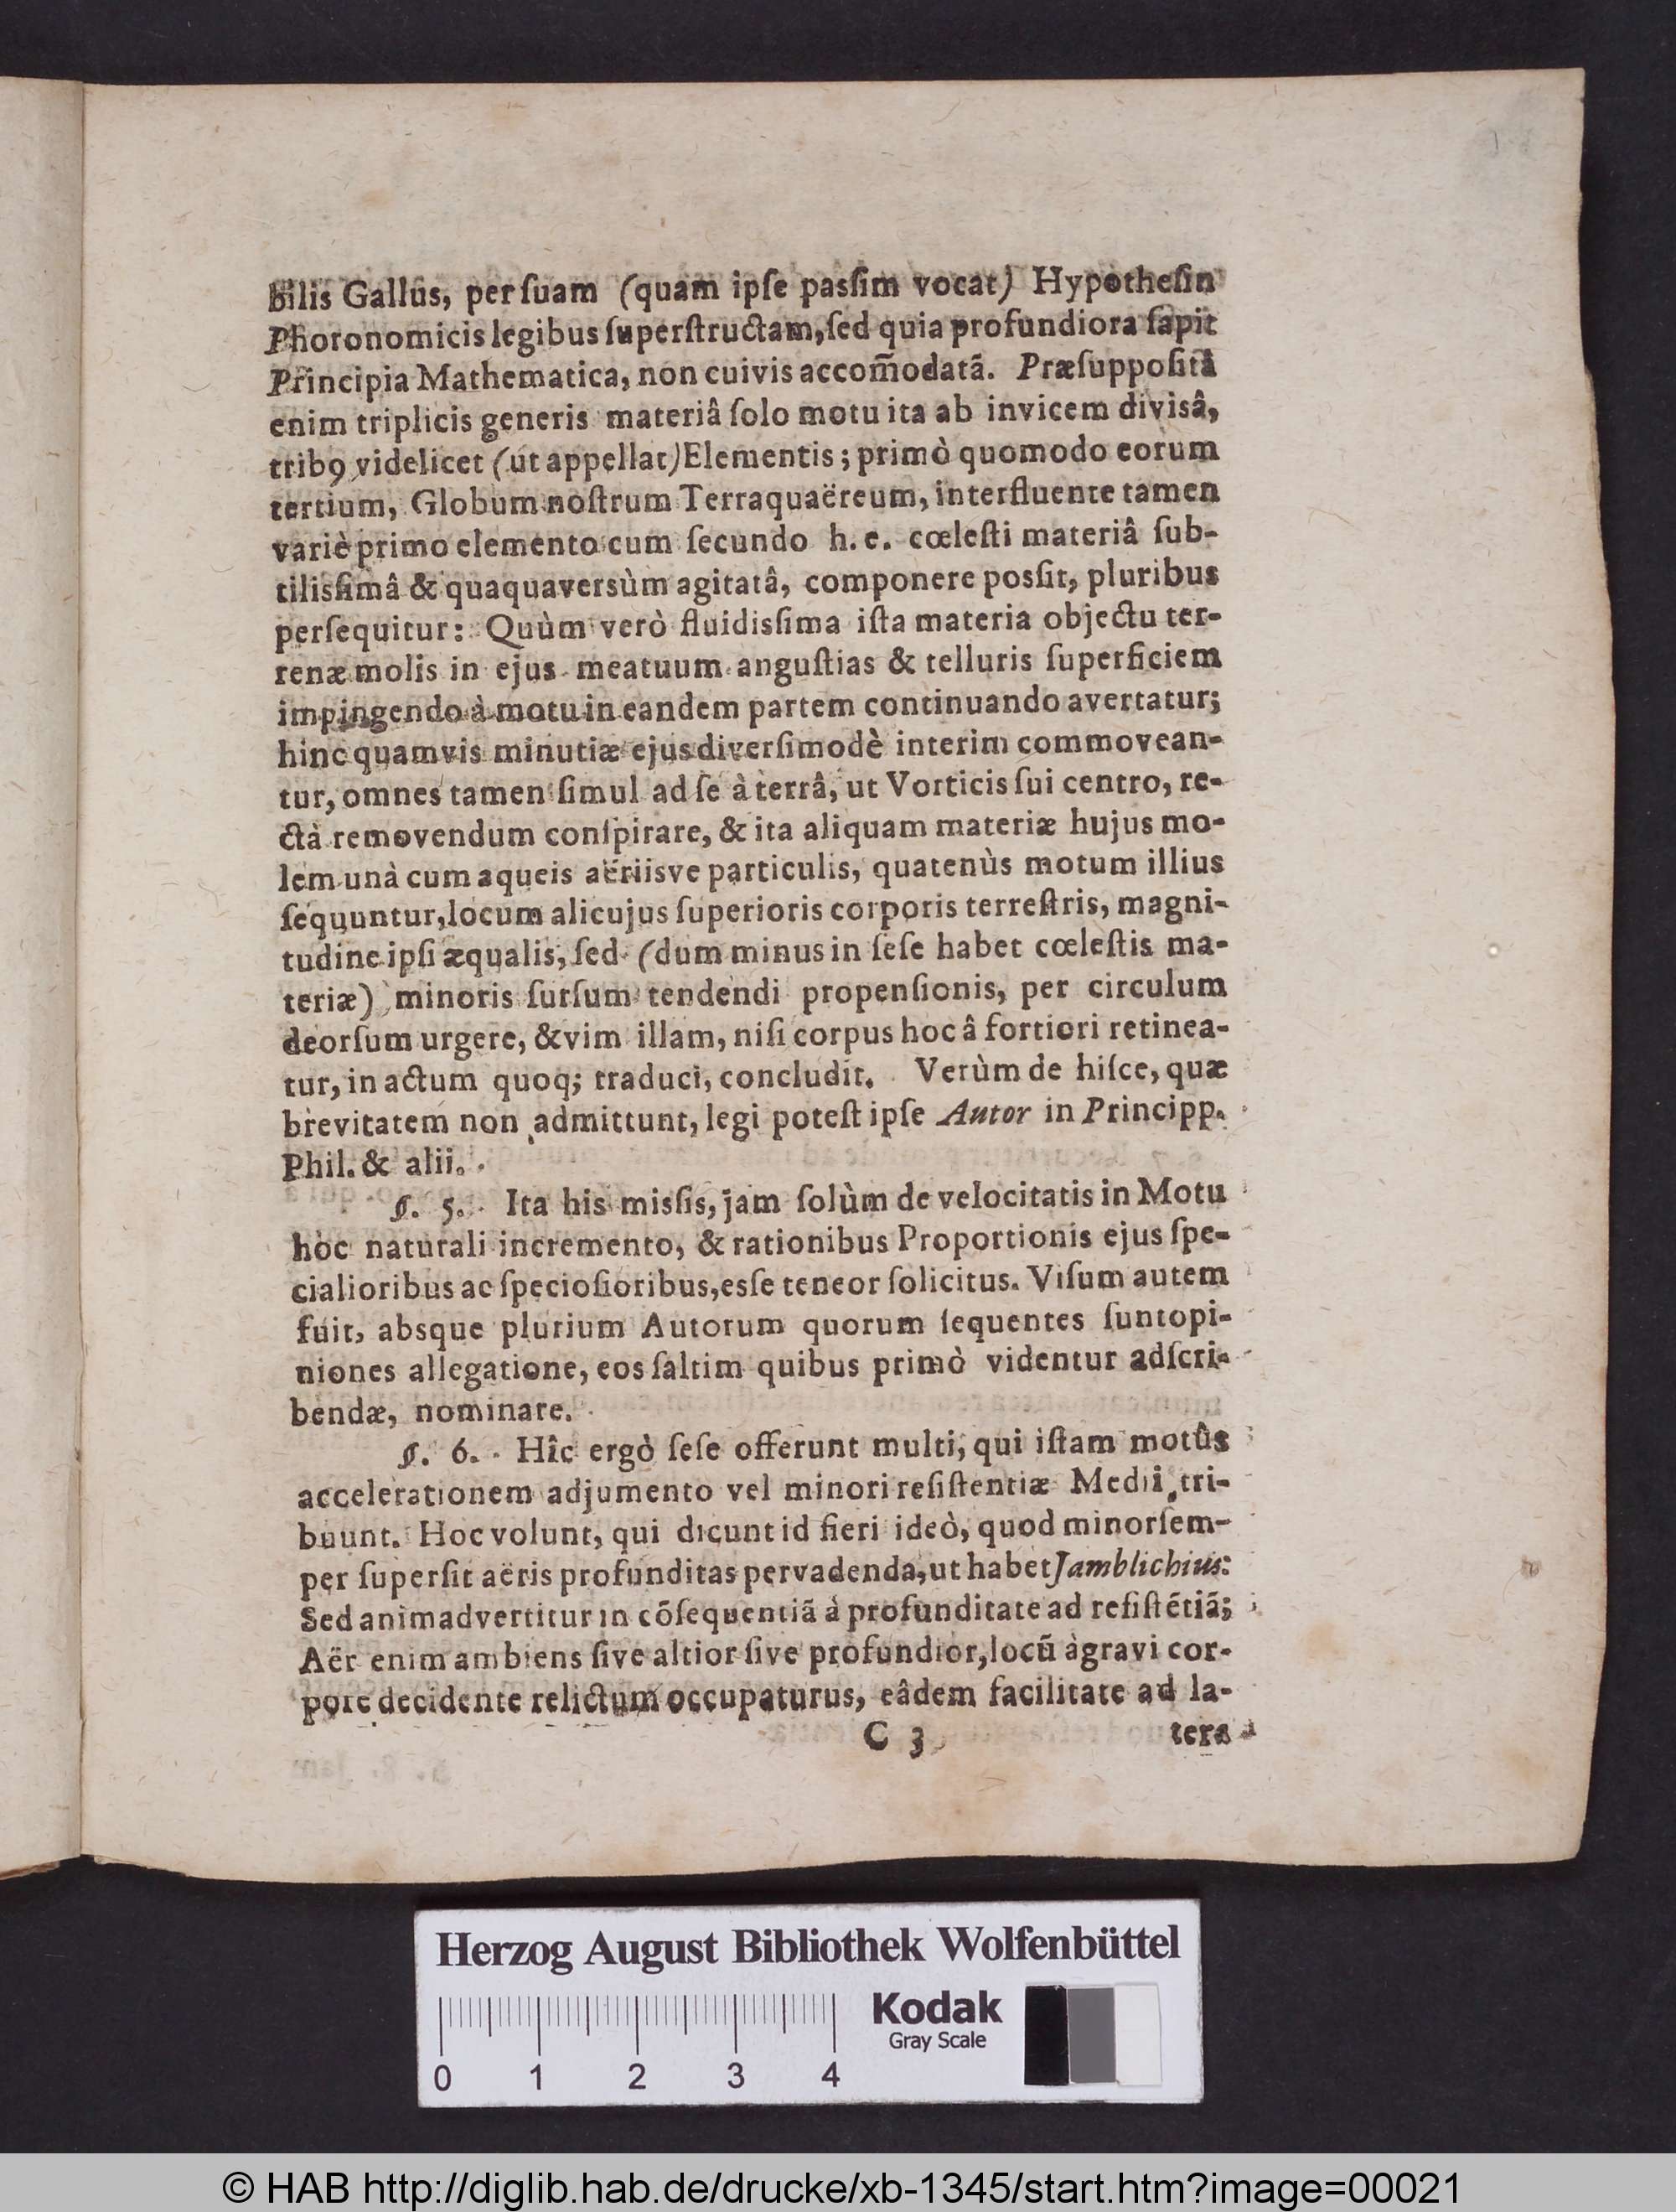 bilis Gallus, per ſuam (quam ipſe paſſim vocat) Hypotheſin
Phoronomicis legibus ſuperſtructam, ſed quia profundiora ſapit
Principia Mathematica, non cuivis accom̃odatã. Præſuppoſitâ
enim triplicis generis materiâ ſolo motu ita ab invicem divisâ,
tribꝰ videlicet (ut appellat) Elementis; primò quomodo eorum
tertium, Globum noſtrum Terraquaëreum, interfluente tamen
variè primo elemento cum ſecundo h. e. cœleſti materiâ ſub-
tilisſimâ & quaquaversùm agitatâ, componere posſit, pluribus
perſequitur: Quùm verò fluidisſima iſta materia objectu ter-
renæ molis in ejus meatuum anguſtias & telluris ſuperficiem
impingendo à motu in eandem partem continuando avertatur;
hinc quamvis minutiæ ejus diverſimodè interim commovean-
tur, omnes tamen ſimul ad ſe à terrâ, ut Vorticis ſui centro, re-
ctà removendum conſpirare, & ita aliquam materiæ hujus mo-
lem unà cum aqueis aëriisve particulis, quatenùs motum illius
ſequuntur, locum alicujus ſuperioris corporis terreſtris, magni-
tudine ipſi æqualis, ſed (dum minus in ſeſe habet cœleſtis ma-
teriæ) minoris ſurſum tendendi propenſionis, per circulum
deorſum urgere, & vim illam, niſi corpus hoc â fortiori retinea-
tur, in actum quoq; traduci, concludit. Verùm de hiſce, quæ
brevitatem non admittunt, legi poteſt ipſe Autor in Principp.
Phil. & alii.
§. 5. Ita his misſis, jam ſolùm de velocitatis in Motu
hoc naturali incremento, & rationibus Proportionis ejus ſpe-
cialioribus ac ſpecioſioribus, esſe teneor ſolicitus. Viſum autem
fuit, absque plurium Autorum quorum ſequentes ſunt opi-
niones allegatione, eos ſaltim quibus primò videntur adſcri-
bendæ, nominare.
§. 6. Hîc ergò ſeſe offerunt multi, qui iſtam motûs
accelerationem adjumento vel minori reſiſtentiæ Medii tri-
buunt. Hoc volunt, qui dicunt id fieri ideò, quod minor ſem-
per ſuperſit aëris profunditas pervadenda, ut habet Jamblichius:
Sed animadvertitur in cõſequentiã à profunditate ad reſiſtẽtiã;
Aër enim ambiens ſive altior ſive profundior, locũ à gravi cor-
pore decidente relictum occupaturus, eâdem facilitate ad la-
C 3 tera
Herzog August Bibliothek Wolfenbüttel
Kodak
Gray Scale
0 1 2 3 4
© HAB http://diglib.hab.de/drucke/xb-1345/start.htm?image=00021